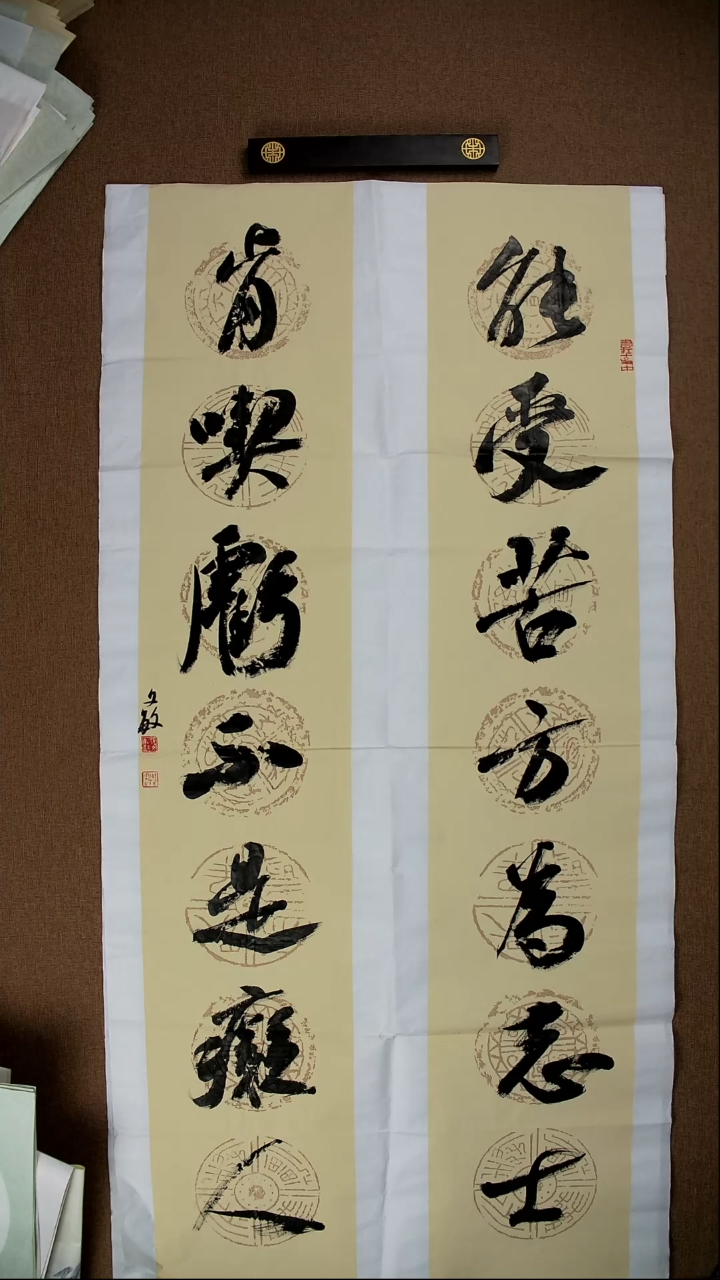 能受苦方為志士
肯喫虧不是癡人
文敏